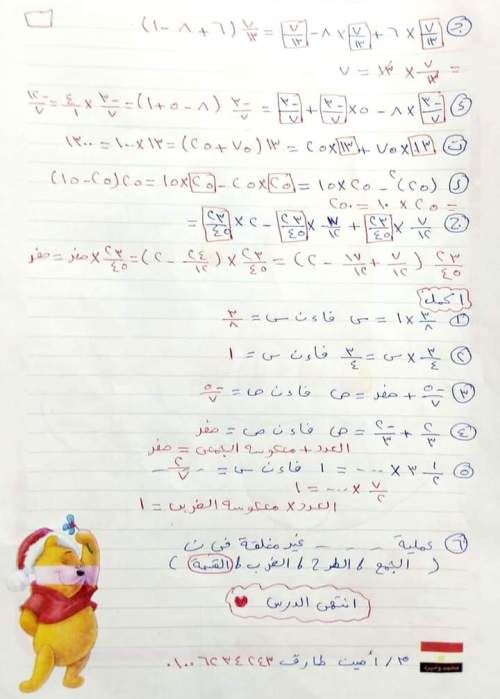 ج) ٧/١٣ × ٦ + ٧/١٣ × ٨ - ٧/١٣ = ٧/١٣ (٦ + ٨ - ١)
= ٧/١٣ × ١٣ = ٧
-٣/٧ × ٨ - ٥ × -٣/٧ + -٣/٧ = -٣/٧ (٨ - ٥ + ١) = -٣/٧ × ٤/١ = -١٢/٧
١٣ × ٧٥ + ١٣ × ٢٥ = ١٣ (٧٥ + ٢٥) = ١٣ × ١٠٠ = ١٣٠٠
(٢٥)٢ - ٢٥ × ١٥ = ٢٥ × ٢٥ - ٢٥ × ١٥ = ٢٥ (٢٥ - ١٥)
= ٢٥ × ١٠ = ٢٥٠
٧/١٢ × ٢٣/٤٥ + ١٧/١٢ × ٢٣/٤٥ - ٢ × ٢٣/٤٥ =
٢٣/٤٥ (٧/١٢ + ١٧/١٢ - ٢) = ٢٣/٤٥ × (٢٤/١٢ - ٢) = ٢٣/٤٥ × صفر = صفر
اكمل
١) ٣/٨ × ١ = س فاءن س = ٣/٨
٢) ٣/٤ × س = ٣/٤ فاءن س = ١
٣) -٥/٧ + صفر = ص فاءن ص = -٥/٧
٤) ٢/٣ + -٢/٣ = ص فاءن ص = صفر
العدد + معكوسه الجمعى = صفر
٥) ٣ ١/٢ × ... = ١ فاءن س = ٢/٧
٧/٢ × ... = ١
العدد × معكوسه الضربى = ١
٦) عملية ـ ـ ـ ـ غير مغلقة فى ن
( الجمع ، الطرح ، الضرب ، القسمة )
انتهى الدرس
م/ أمين طارق ٠١٠٠٦٢٣٤٢٤٣